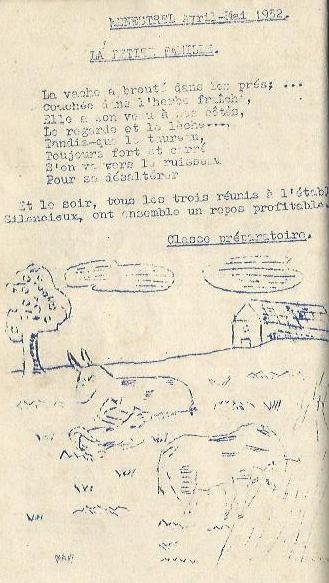 MENESTREL Avril-Mai 1952.
LA PETITE FAMILLE.
La vache a brouté dans les prés; ...
Couchée dans l'herbe fraîche,
Elle a son veau à ses côtés,
Le regarde et le lèche...,
Tandis-que le taureau,
Toujours fort et carré
S'en va vers le ruisseau
Pour se désaltérer
Et le soir, tous les trois réunis à l'établ
Silencieux, ont ensemble un repos profitable.
Classe préparatoire.